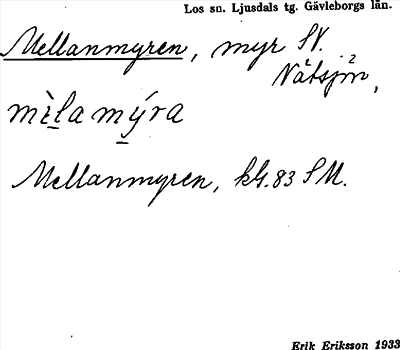 Los sn. Ljusdals tg. Gävleborgs län.
Mellanmyren, myr SV.
Nätsjön,
mèla mýra
Mellanmyren, kbl. 83 SM.
Erik Eriksson 1933